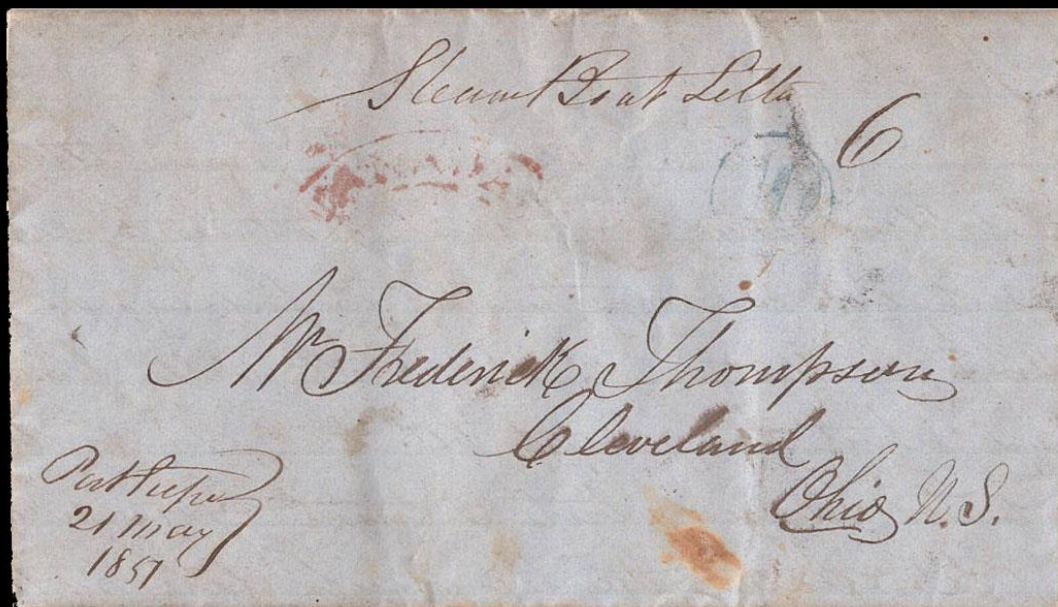 Steam Boat Letter
6
10
Mr Frederick Thompson
Cleveland
Ohio U.S.
21 May
1851